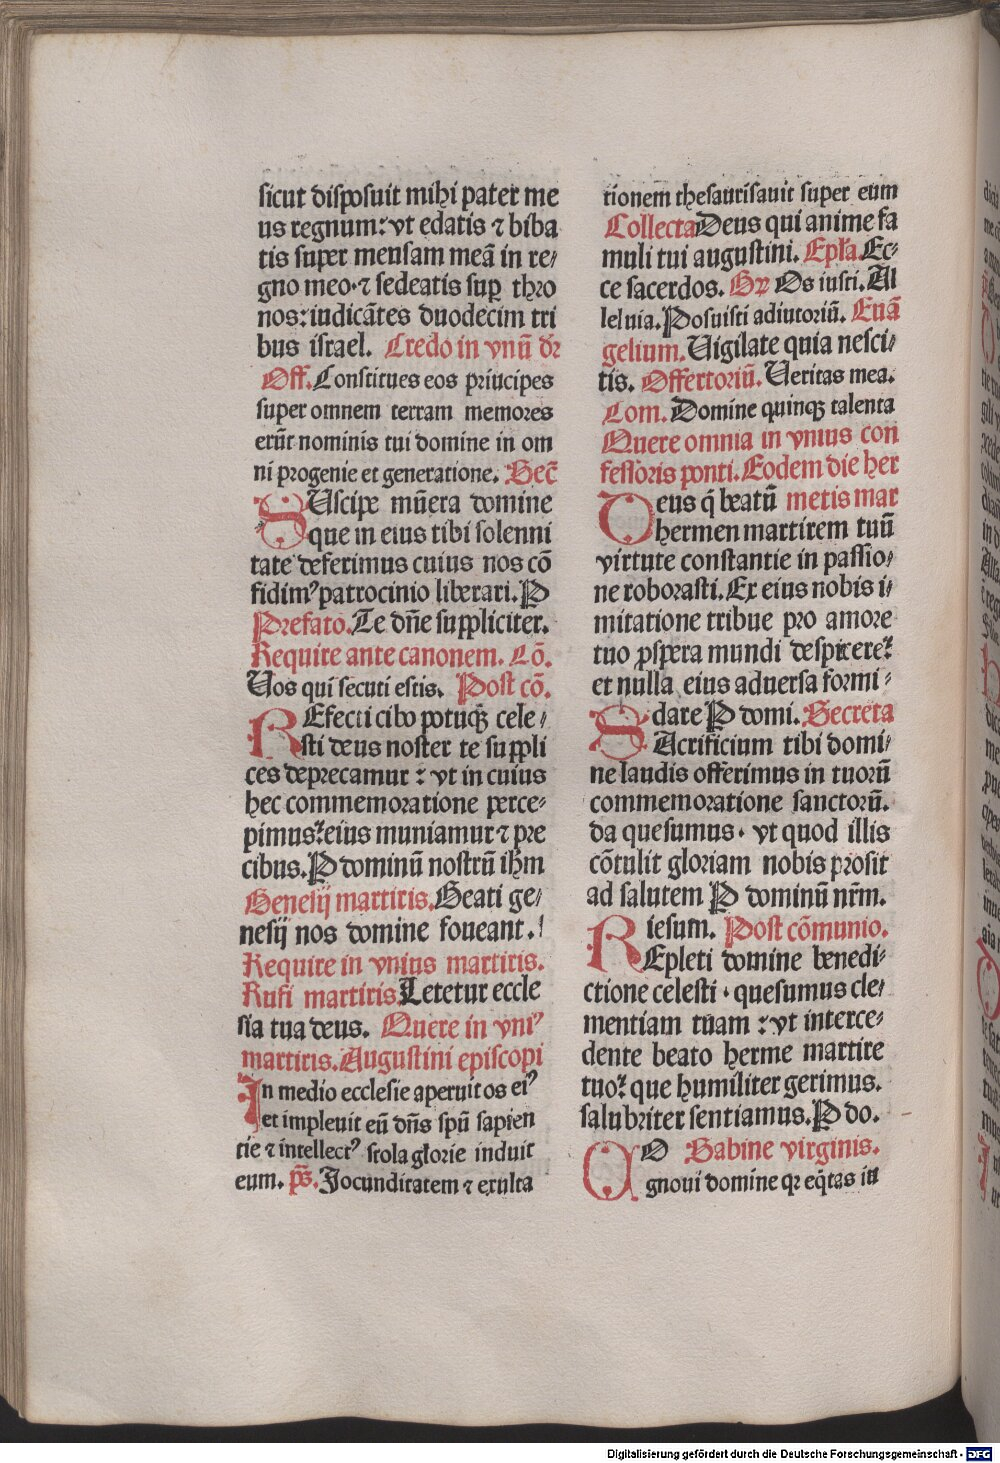 sicut disposuit mihi pater me
us regnum: vt edatis ⁊ biba
tis super mensam meā in re⸗
gno meo·⁊ sedeatis suꝑ thro
nos: iudicātes duodecim tri
bus israel. Credo in vnū dꝛ
Off. Constitues eos principes
super omnem terram memores
erūt nominis tui domine in om
ni progenie et generatione. Secꝛ̄
SUscipe mūera domine
que in eius tibi solenni
tate deferimus cuius nos cō
fidimꝰ patrocinio liberari. P
Prefato. Te dn̄e suppliciter.
Require ante canonem. Cō.
Vos qui secuti estis. Post cō.
REfecti cibo potuqꝫ cele⸗
sti deus noster te suppli
ces deprecamur: vt in cuius
hec commemoratione perce⸗
pimus: eius muniamur ⁊ pre
cibus. P dominū nostrū ihm̄
Genesij martiris. Beati ge⸗
nesij nos domine foueant.
Require in vnius martiris.
Rufi martiris. Letetur eccle
sia tua deus. Quere in vniꝰ
martiris. Augustini episcopi
In medio ecclesie aperuit os eiꝰ
et impleuit eū dn̄s spū sapien
tie ⁊ intellectꝰ stola glorie induit
eum. ps̄. Jocunditatem ⁊ exulta
tionem thesaurisauit super eum
Collecta Deus qui anime fa
muli tui augustini. Epl̄a. Ec⸗
ce sacerdos. Gꝛ Os iusti. Al
leluia. Posuisti adiutoriū. Euā
gelium. Vigilate quia nesci⸗
tis. Offertoriū. Veritas mea.
Com. Domine quinqꝫ talenta
Quere omnia in vnius con
fessoris ponti. Eodem die her
Deus q̄ beatū metis mar
hermen martirem tuū
virtute constantie in passio⸗
ne roborasti. Ex eius nobis i⸗
mitatione tribue pro amore
tuo ꝓspera mundi despicere:
et nulla eius aduersa formi⸗
dare P domi. Secreta
SAcrificium tibi domi⸗
ne laudis offerimus in tuorū
commemoratione sanctorū.
da quesumus · vt quod illis
cōtulit gloriam nobis prosit
ad salutem P dominū nr̄m.
iesum. Post cōmunio.
REpleti domine benedi⸗
ctione celesti · quesumus cle⸗
mentiam tuam: vt interce⸗
dente beato herme martire
tuo: que humiliter gerimus.
salubriter sentiamus. P do.
CO Sabine virginis.
gnoui domine qꝛ eq̄tas iu
Digitalisierung gefördert durch die Deutsche Forschungsgemeinschaft - DFG